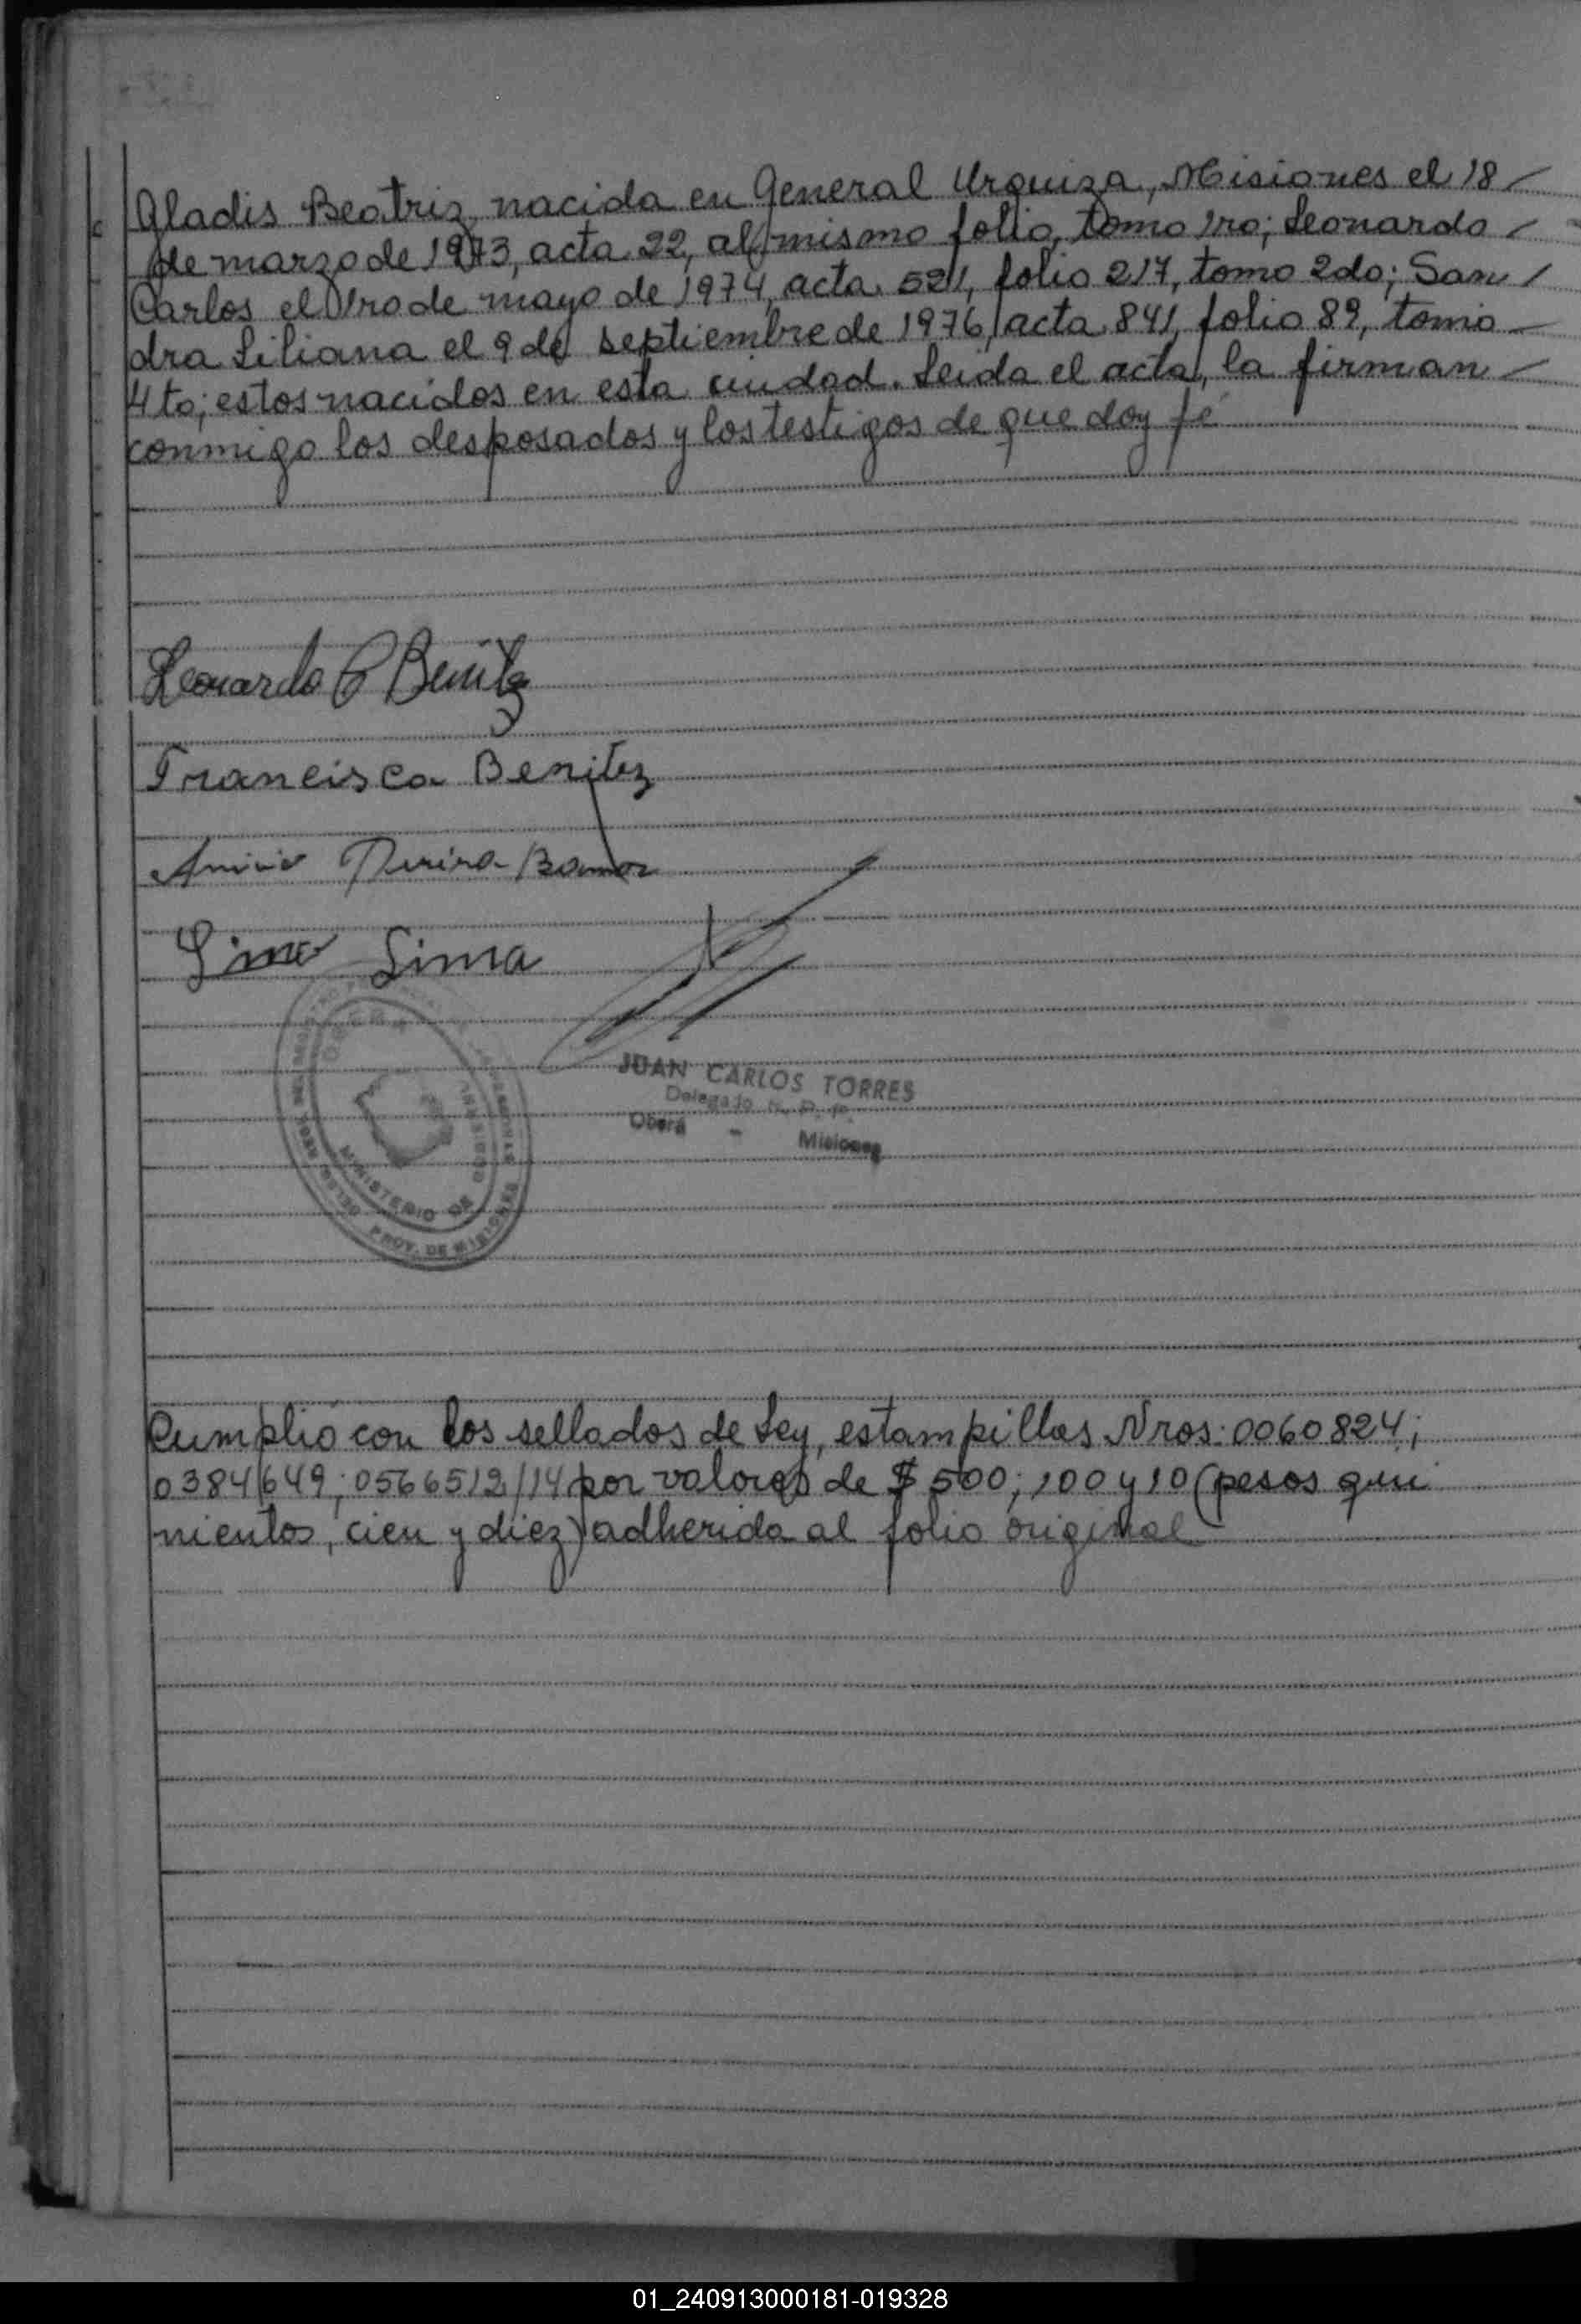 Gladis Beatriz, nacida en General Urquiza, Misiones el 18
de marzo de 1973, acta 22, al mismo folio, tomo 1ro; Leonardo
Carlos el 1ro de mayo de 1974, acta 521, folio 217, tomo 2do; San
dra Liliana el 9 de septiembre de 1976, acta 841, folio 89, tomo
4to; estos nacidos en esta ciudad. Leida el acta, la firman
conmigo los desposados y los testigos de que doy fé
Leonardo C Benitez
Francisca Benitez
Lima
OBERA
MINISTERIO DE GOBIERNO
PROV. DE MISIONES
JUAN CARLOS TORRES
Delegado R. P. P.
Oberá - Misiones
Cumplió con los sellados de Ley, estampillas Nros: 0060824;
0384649; 0566512/14 por valores de $ 500; 100 y 10 (pesos qui
nientos, cien y diez) adherida al folio original
01_240913000181-019328